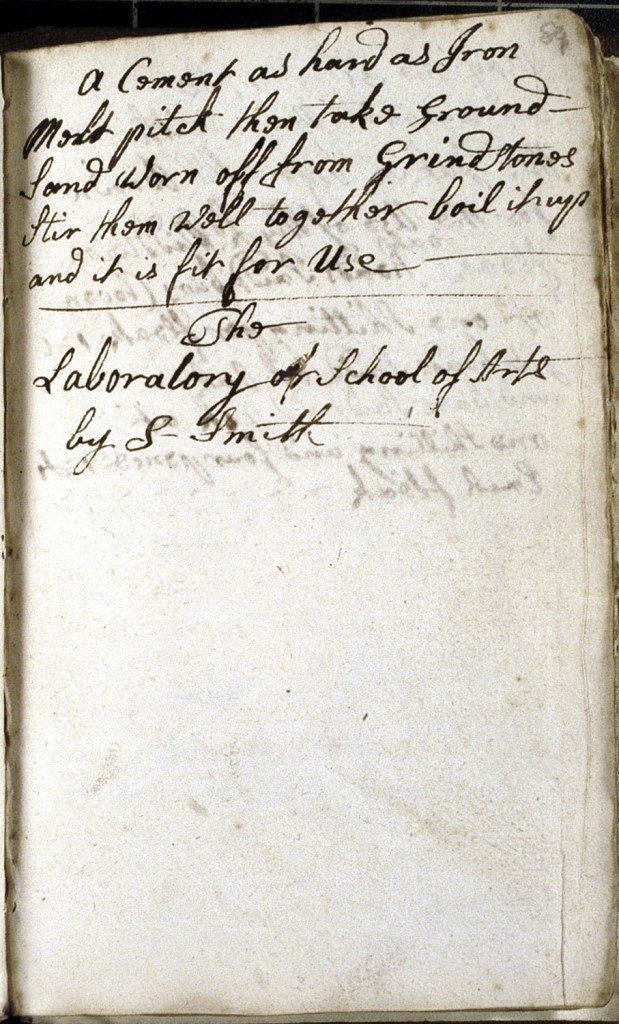 A Cement as hard as Iron
Melt pitch then take Ground
Sand Worn off from Grindstones
Stir them Well together boil it up
and it is fit for Use
The
Laboratory or School of Arts
by S Smith